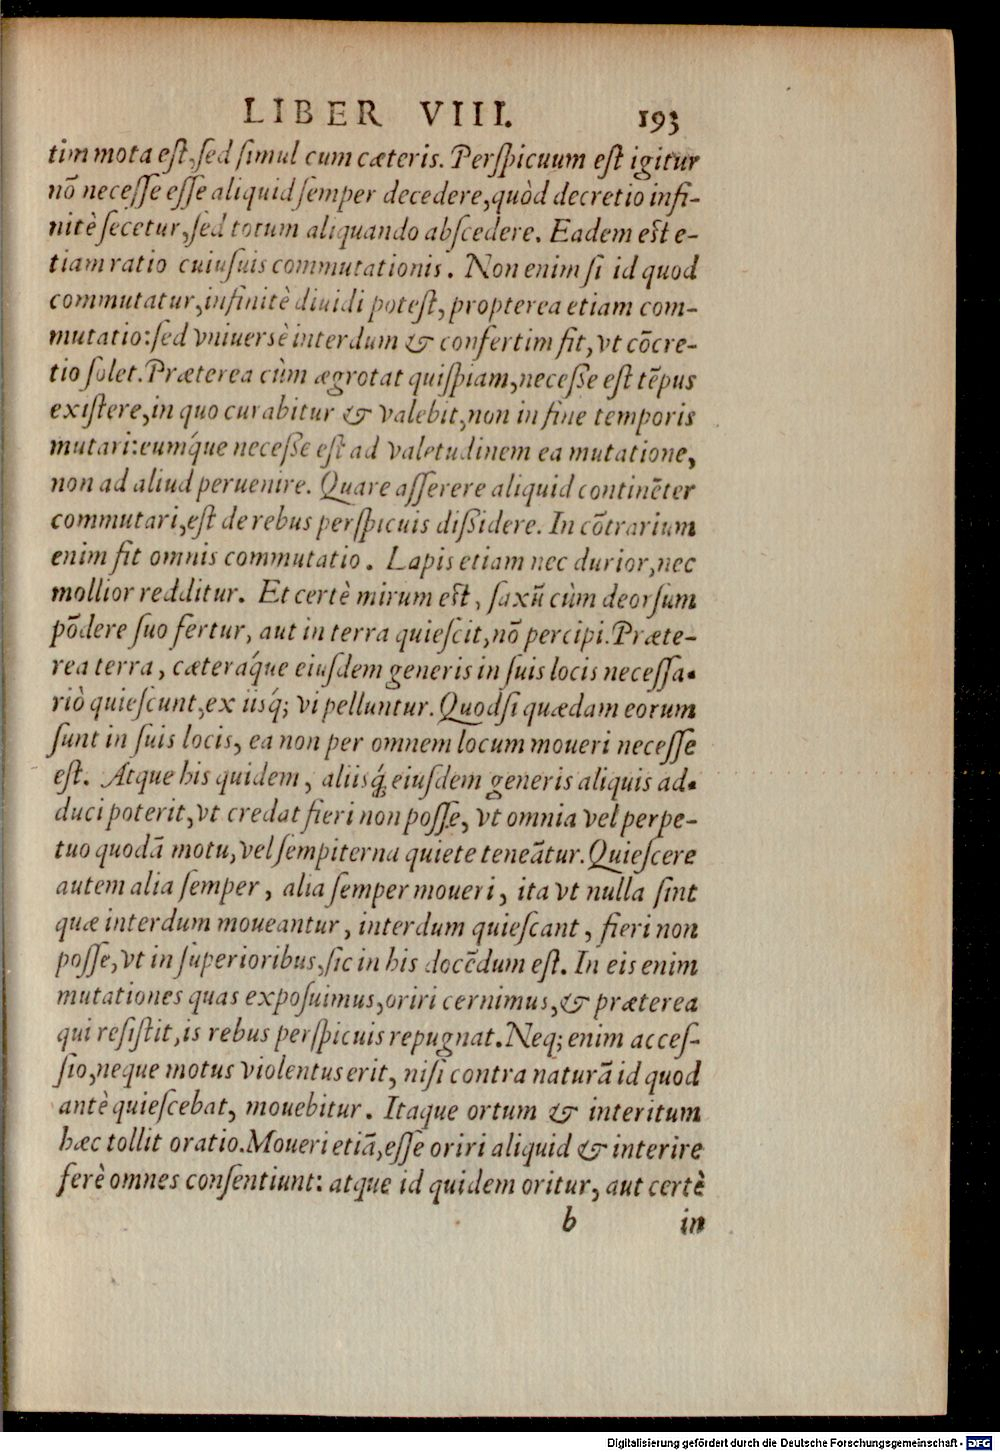 LIBER VIII. 193
tim mota eſt, ſed ſimul cum cæteris. Perſpicuum eſt igitur
nō neceſſe eſſe aliquid ſemper decedere, quòd decretio infi-
nitè ſecetur, ſed totum aliquando abſcedere. Eadem eſt e-
tiam ratio cuiuſuis commutationis. Non enim ſi id quod
commutatur, infinitè diuidi poteſt, propterea etiam com-
mutatio: ſed vniuersè interdum & confertim fit, vt cōcre-
tio ſolet. Præterea cùm ægrotat quiſpiam, neceſſe eſt tēpus
exiſtere, in quo curabitur & valebit, non in fine temporis
mutari: eumq́ue neceſſe eſt ad valetudinem ea mutatione,
non ad aliud peruenire. Quare aſſerere aliquid continēter
commutari, eſt de rebus perſpicuis diſſidere. In cōtrarium
enim fit omnis commutatio. Lapis etiam nec durior, nec
mollior redditur. Et certè mirum eſt, ſaxū cùm deorſum
pōdere ſuo fertur, aut in terra quieſcit, nō percipi. Præte-
rea terra, cæteraq́ue eiuſdem generis in ſuis locis neceſſa-
riò quieſcunt, ex iisq́; vi pelluntur. Quodſi quædam eorum
ſunt in ſuis locis, ea non per omnem locum moueri neceſſe
eſt. Atque his quidem, aliisq́; eiuſdem generis aliquis ad-
duci poterit, vt credat fieri non poſſe, vt omnia vel perpe-
tuo quodā motu, vel ſempiterna quiete teneātur. Quieſcere
autem alia ſemper, alia ſemper moueri, ita vt nulla ſint
quæ interdum moueantur, interdum quieſcant, fieri non
poſſe, vt in ſuperioribus, ſic in his docēdum eſt. In eis enim
mutationes quas expoſuimus, oriri cernimus, & præterea
qui reſiſtit, is rebus perſpicuis repugnat. Neq; enim acceſ-
ſio, neque motus violentus erit, niſi contra naturā id quod
antè quieſcebat, mouebitur. Itaque ortum & interitum
hæc tollit oratio. Moueri etiā, eſſe oriri aliquid & interire
ferè omnes conſentiunt: atque id quidem oritur, aut certè
b in
Digitalisierung gefördert durch die Deutsche Forschungsgemeinschaft - DFG